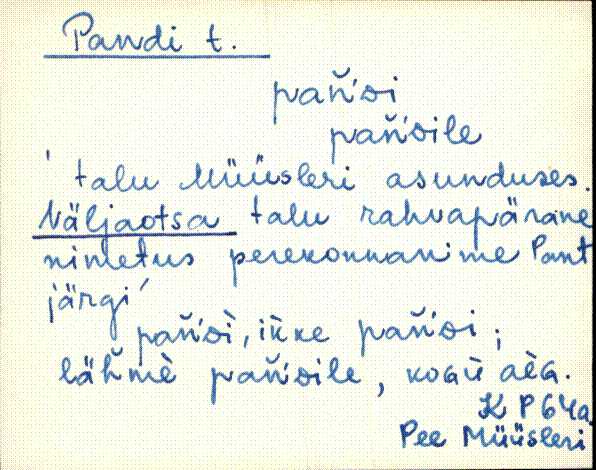 Pandi t.
pan̆'di
pan̆'dile
' talu Müüsleri asunduses.
Väljaotsa talu rahvapärane
nimetus perekonnanime Pant
järgi'
pan̆'dì̮, ik̆ke pan̆'di;
läh̆mè pan̆'dile, koɢu aèɢ.
K P 64a
Pee Müüsleri